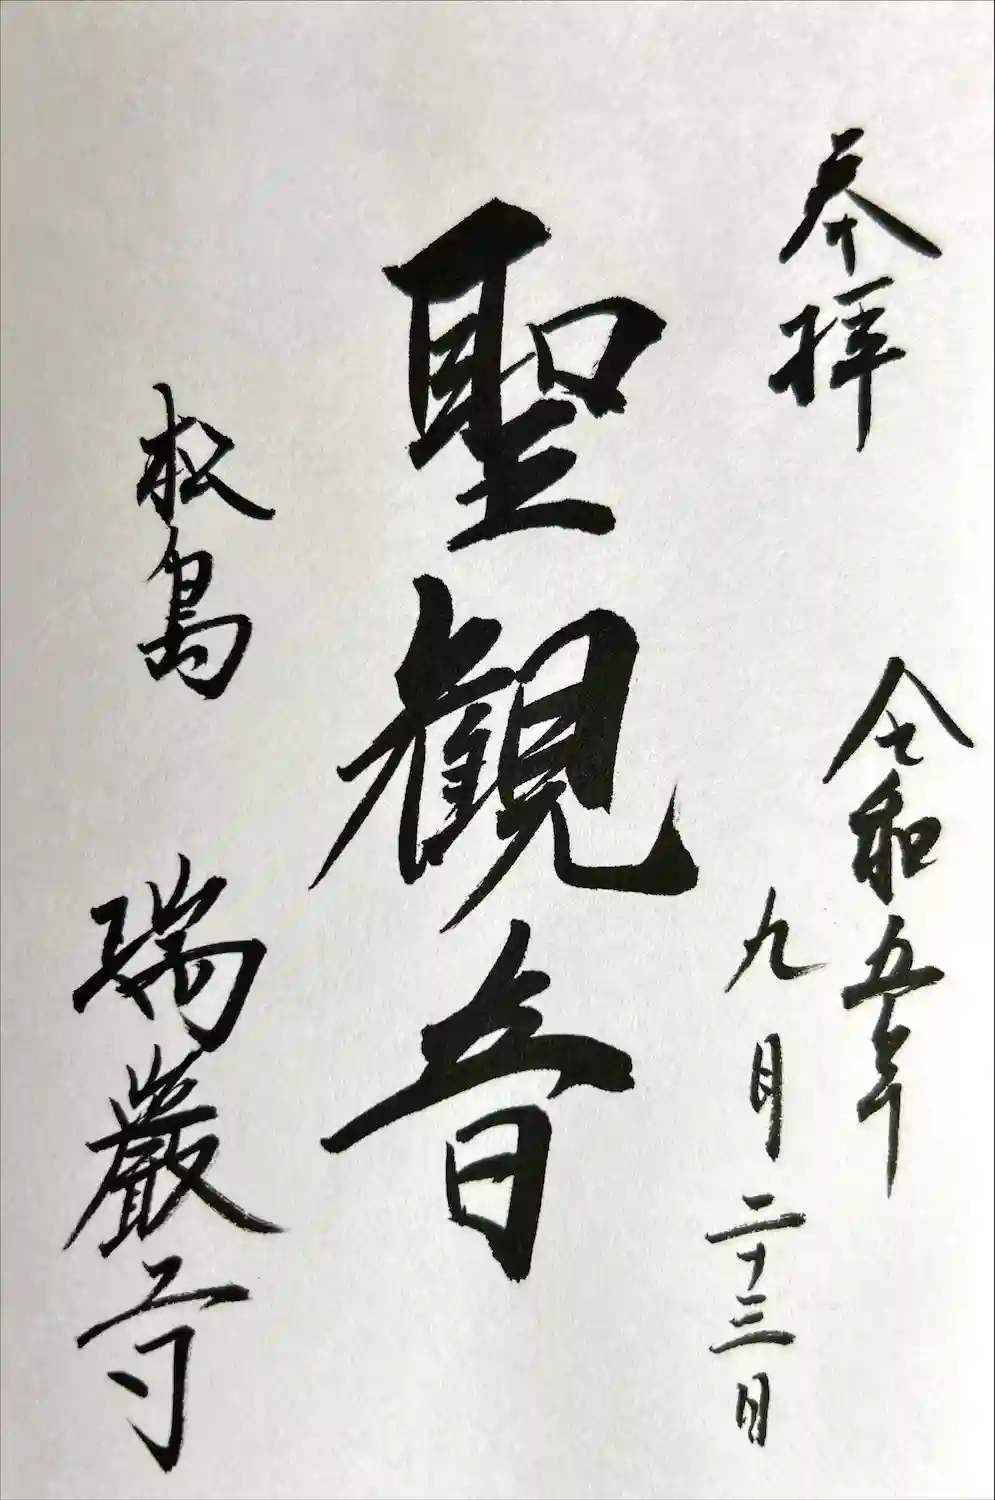 奉拝
令和五年
九月二十三日
聖観音
松島 瑞巌寺